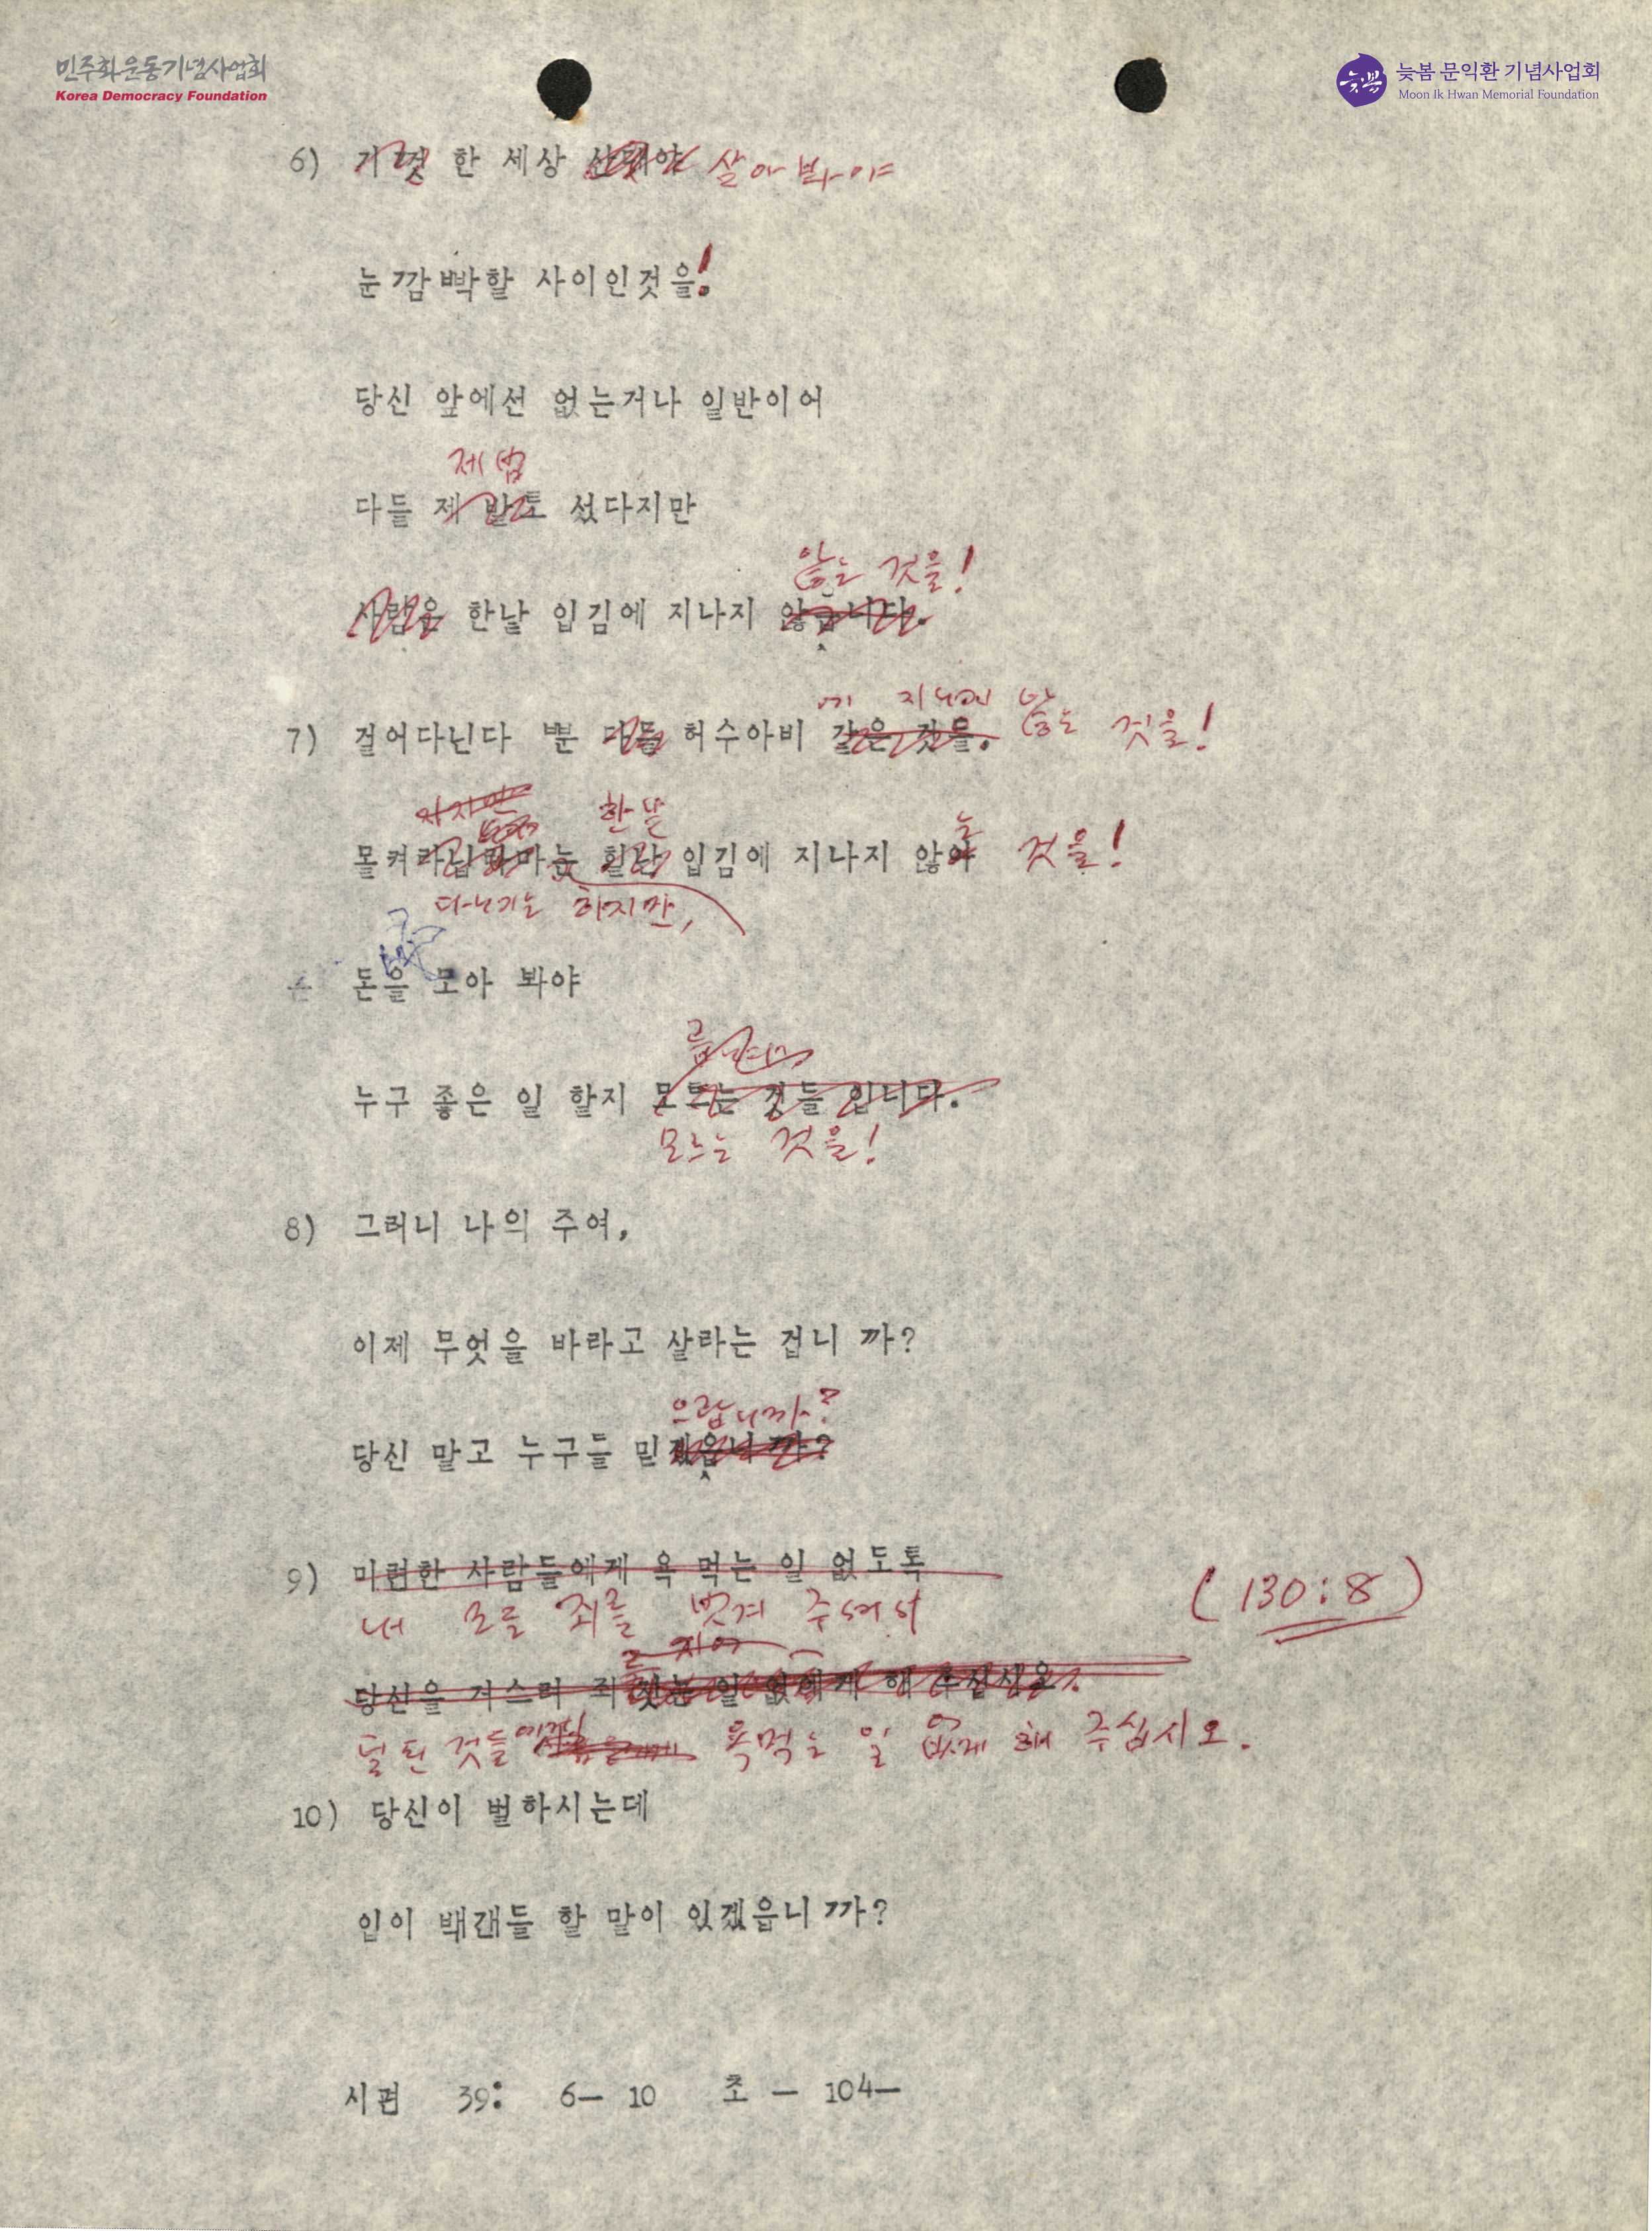 민주화운동기념사업회
Korea Democracy Foundation
늦봄
늦봄 문익환 기념사업회
Moon Ik Hwan Memorial Foundation
6) 기껏 한 세상 살아봐야
눈깜빡할 사이인것을!
당신 앞에선 없는거나 일반이어
제법
다들 제 발로 섰다지만
않는 것을!
사람은 한낱 입김에 지나지 않읍니다.
에 지나지 않는 것을!
7) 걸어다닌다 뿐 다들 허수아비 같은 것들.
한낱
몰켜 입김에 지나지 않 는 것을!
다니기는 하지만,
돈을 모아 봐야
누구 좋은 일 할지 모르는 것들 입니다.
모르는 것을!
8) 그러니 나의 주여,
이제 무엇을 바라고 살라는 겁니 까?
으랍니까?
당신 말고 누구를 믿겠읍니 까?
9) 미련한 사람들에게 욕 먹는 일 없도록
(130:8)
내 모든 죄를 벗겨 주셔서
당신을 거스려 죄 짓는 일 없에게 해 주십시오.
덜된 것들 욕먹는 일 없게 해 주십시오.
10) 당신이 벌하시는데
입이 백갠들 할 말이 있겠읍니 까?
시편 39: 6- 10 초 - 104-